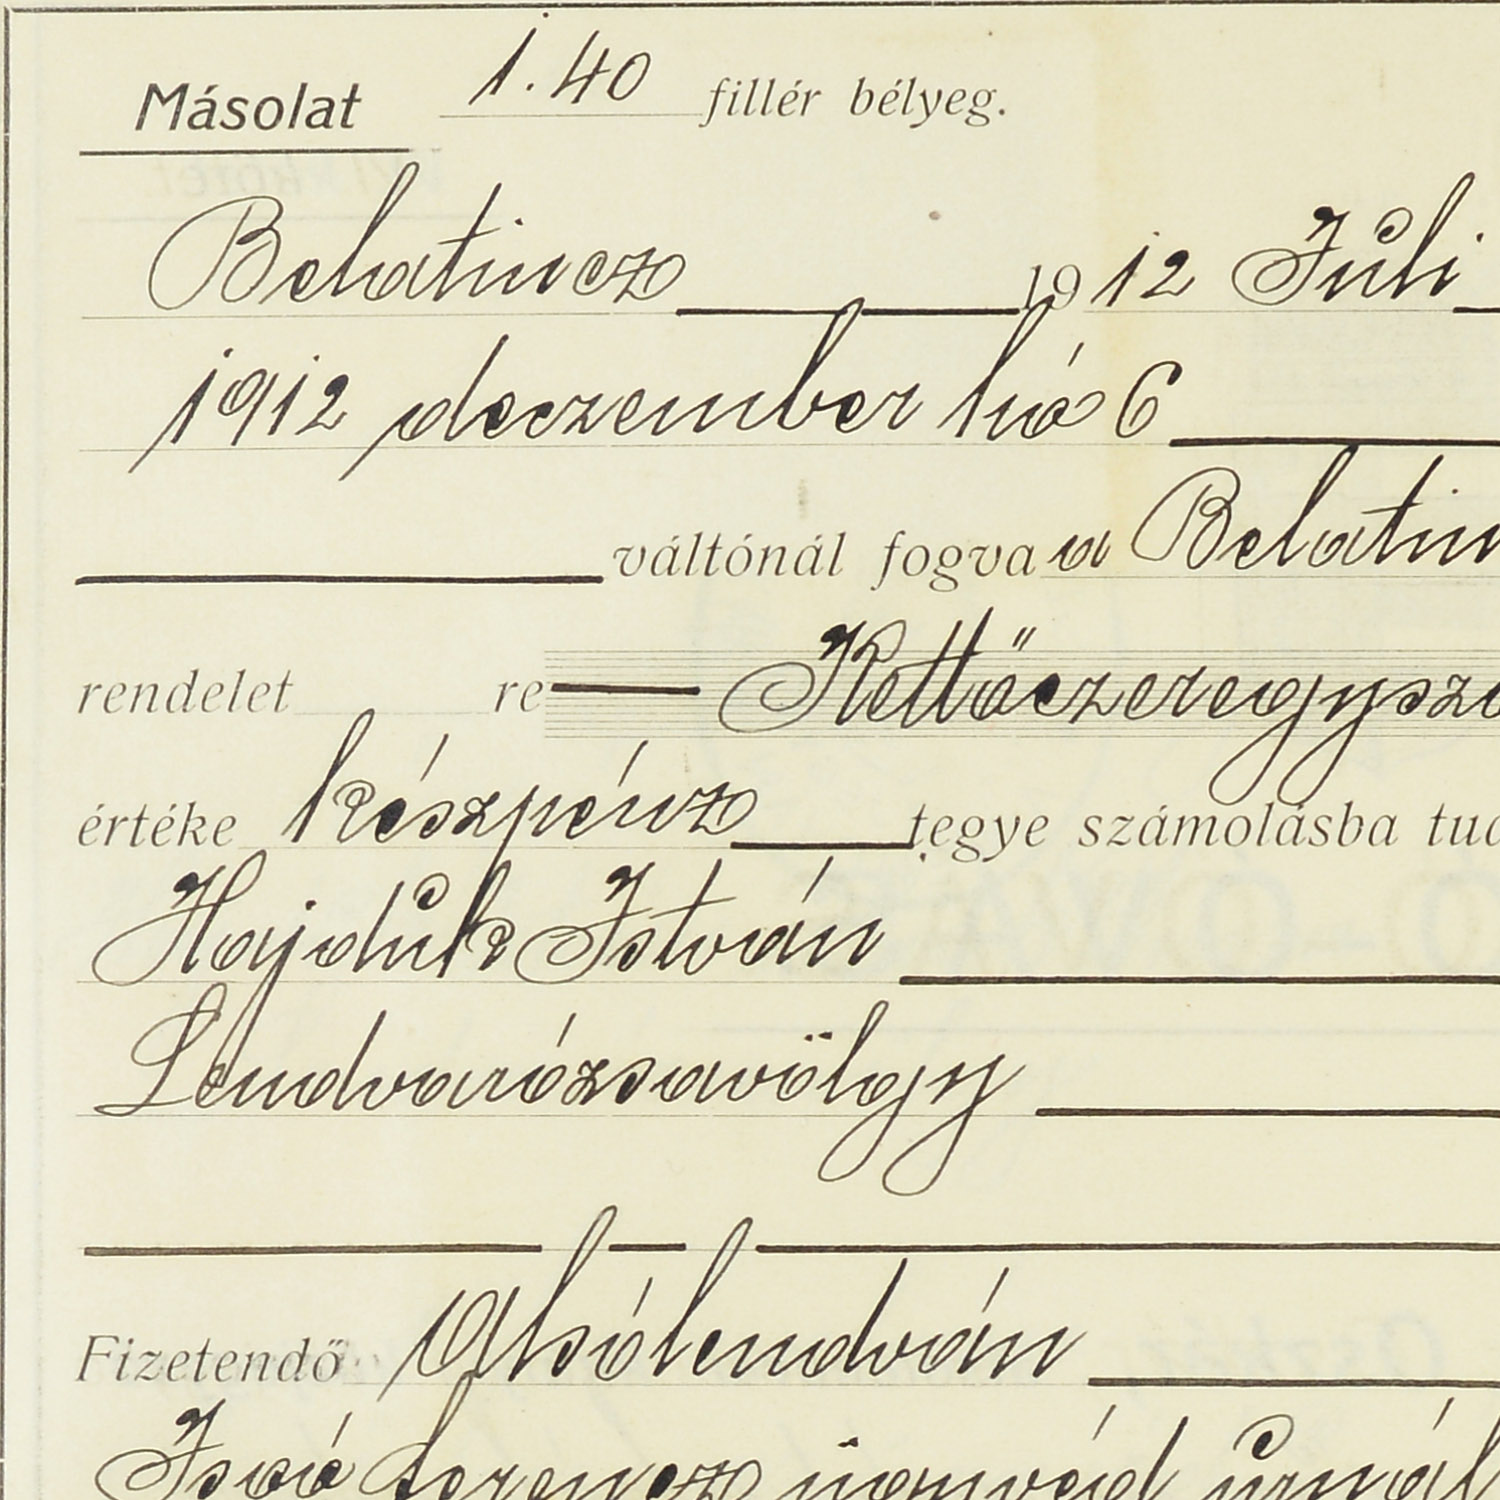 Másolat 1.40 fillér bélyeg.
Belatincz 1912 Júli
1912 deczember hó 6
váltónál fogva a Belatin
rendelet re Kettőezeregysz
értéke készpénz tegye számolásba
Hajduk István
Lendvarózsavölgy
Fizetendő Alsólendván
Ferencz ügyvéd úrnál